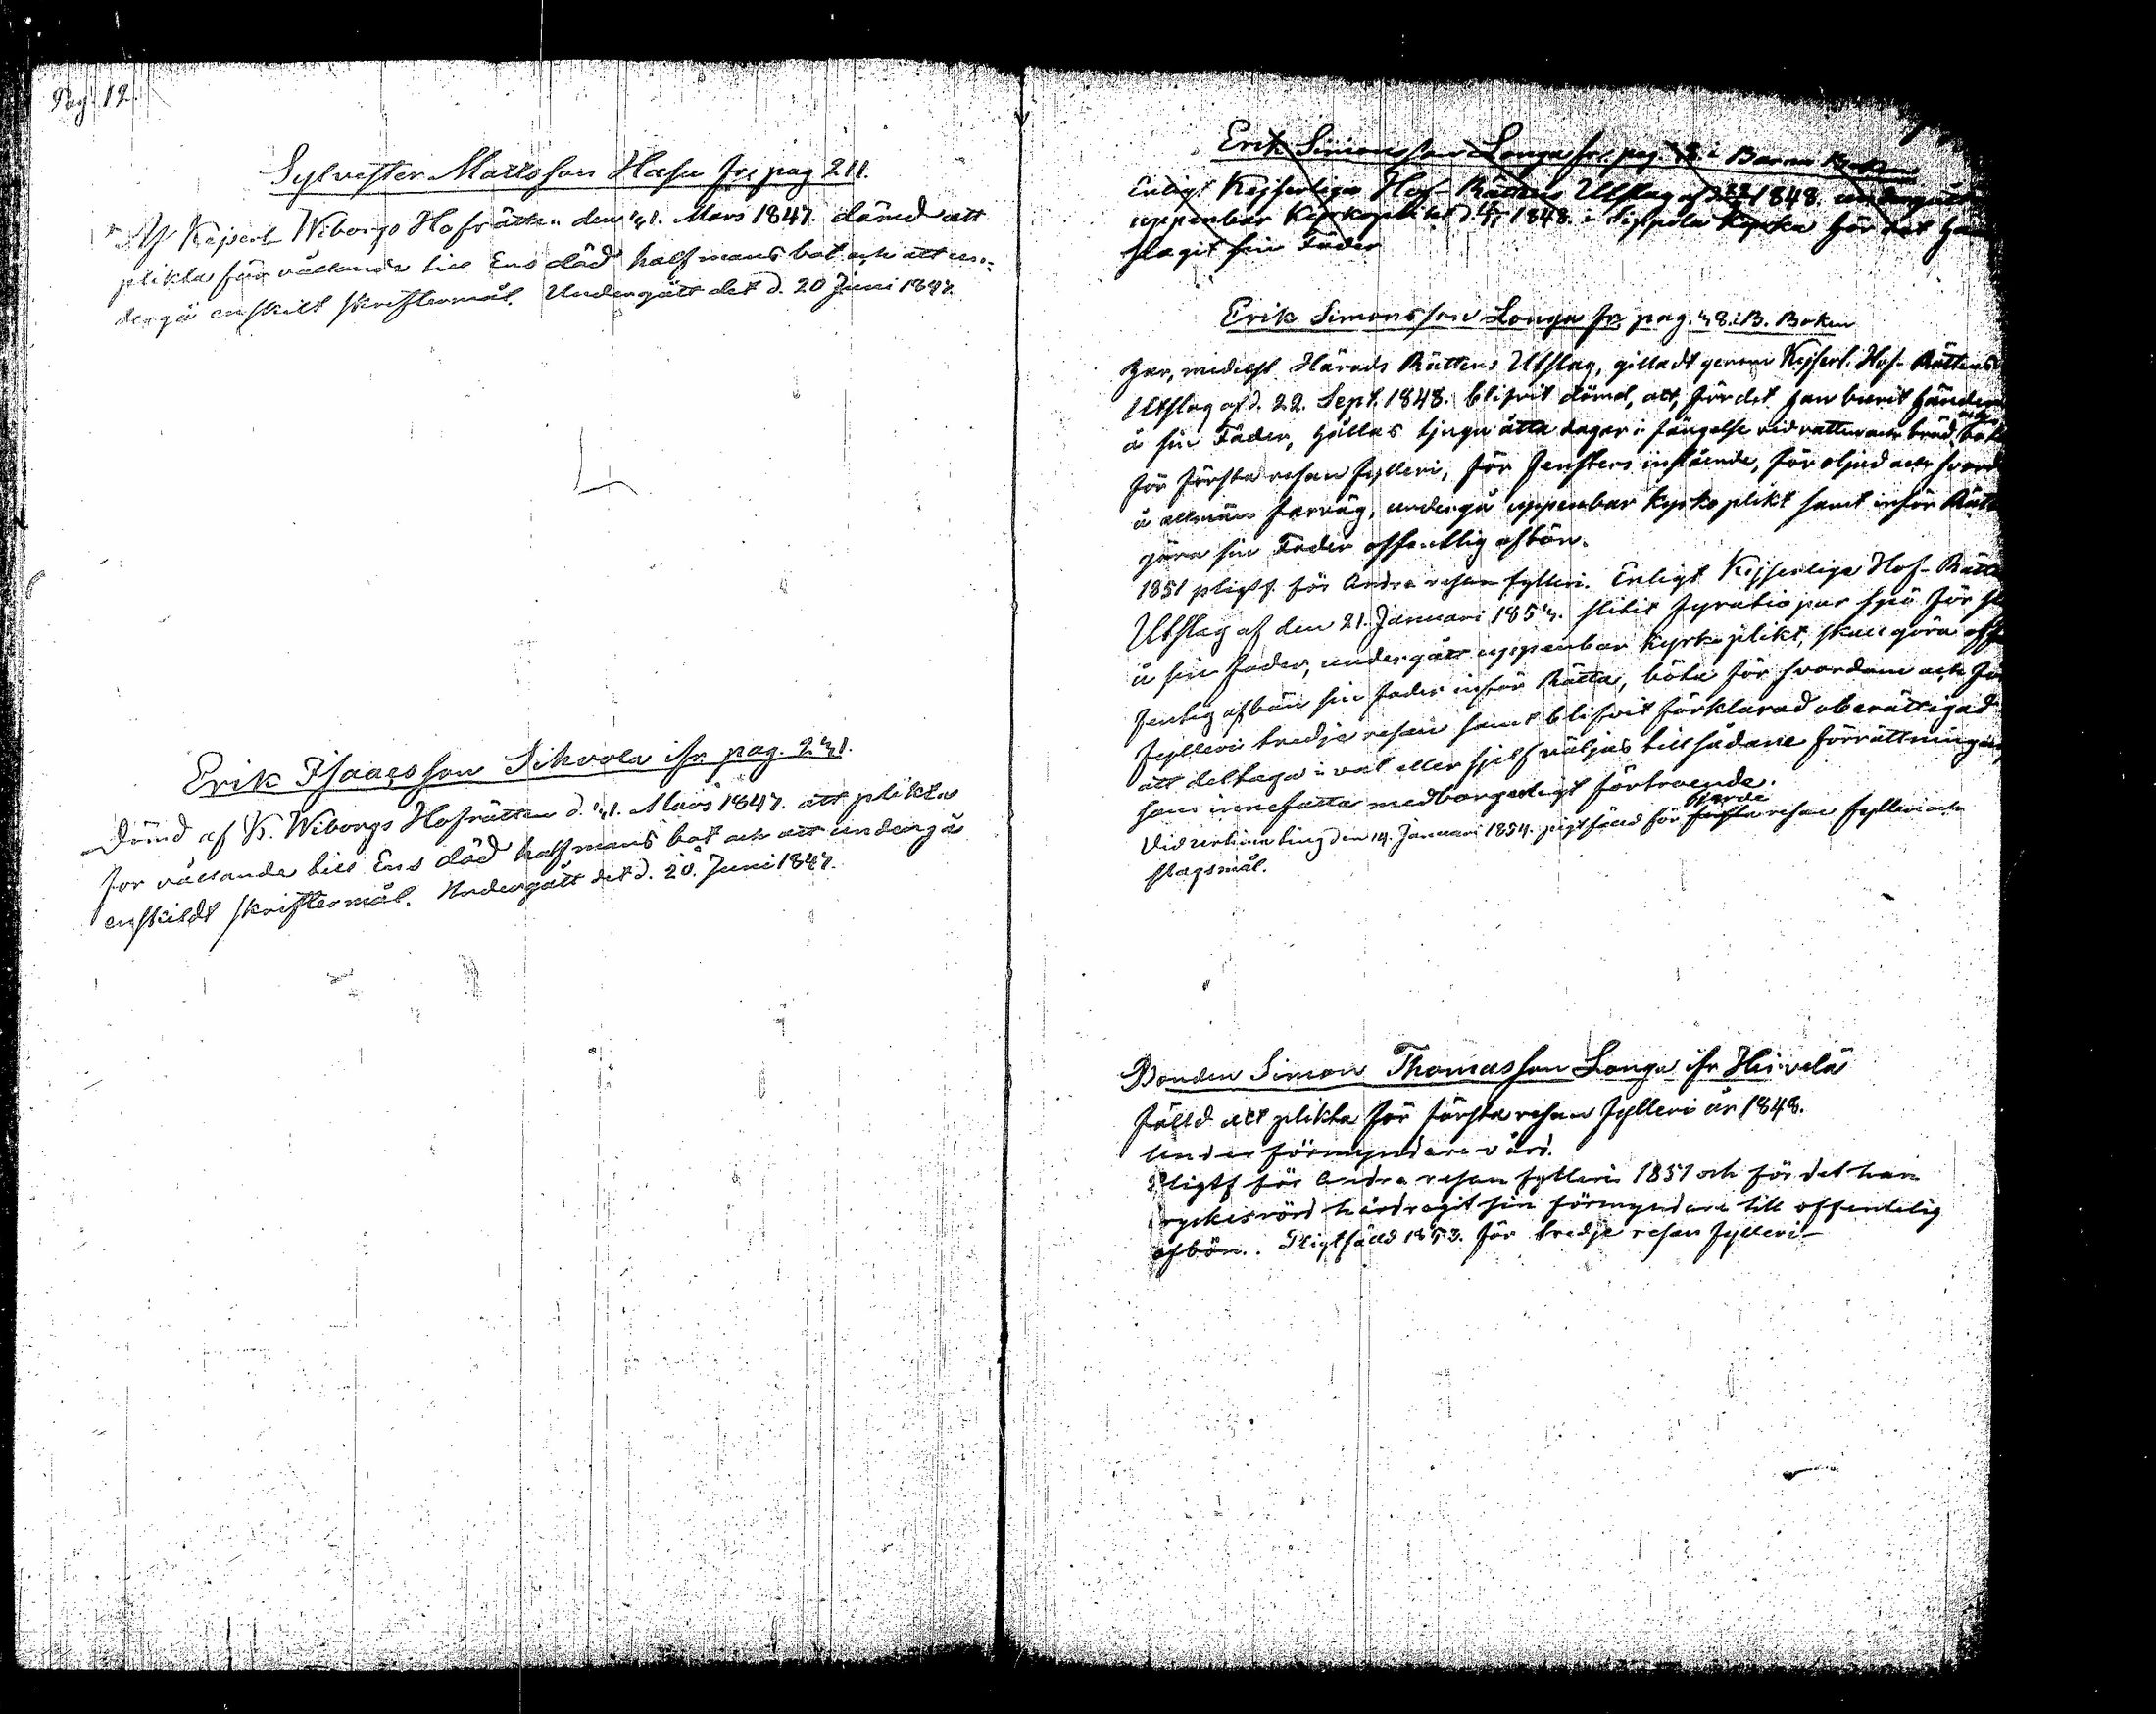 Pag. 12.
Sylvester Mattsson Hasu fr. pag 211.
Af Kejserl. Wiborgs Hofrätten den 4. Mars 1847. dömd att
plikta för vållande till Ens död half mans bot och att un-
dergå enskilt skriftermål. Undergått det d. 20 Juni 1847.
Erik Isaacsson Sihvola ifr. pag. 241.
Dömd af K. Wiborgs Hofrätten d. 4. Mars 1847. att plikta
för vållande till Ens död half mans bot och att undergå
enskildt skriftermål. Undergått det d. 20. Juni 1847.
Erik Simonsson Longa fr. pag. 48 i Barna Boken
Enligt Kejserliga Hof-Rättens Utslag af d. 22/9 1848. undergått
uppenbar Kyrkoplikt d. 1848. i Sippola Kyrka för det han
slagit sin Fader
Erik Simonsson Longa fr. pag. 48. i B. Boken
Har, medelst Härads Rättens Utslag, gilladt genom Kejserl. Hof-Rättens
Utslag af d. 22. Sept. 1848. blifvit dömd, att, för det han burit händer
å sin Fader, hållas tjugu åtta dagar i fängelse vid vatten och bröd, böta
för första resan fylleri, för fensters inslående, för oljud och svord
å allmän farväg, undergå uppenbar kyrkoplikt samt inför Rätta
göra sin Fader offentlig afbön.
1851 pligtf. för Andra resan fylleri. Enligt Kejserliga Hof-Rätte
Utslag af den 21. Januari 1854. slitit fyratio par spö för sl
å sin fader, undergått uppenbar kyrkoplikt, skall göra off
fentlig afbön sin fader inför Rätta, böta för svordom och för
fylleri tredje resan samt blifvit förklarad oberättigad
att deltaga i val eller sjelf väljas till sådane förrättningar
som innefatta medborgerligt förtroende.
Vid ting den 14. Januari 1854. pligtfälld för första fjerde resan fylleri och
slagsmål.
Bonden Simon Thomasson Longa ifr. Heivelä
fälld att plikta för första resan fylleri år 1848.
Under förmyndare vård.
Pligtf för Andra resan fylleri 1851 och för det han
hårdragit sin förmyndare till offentelig
afbön. Pligtfälld 1853. för tredje resan fylleri